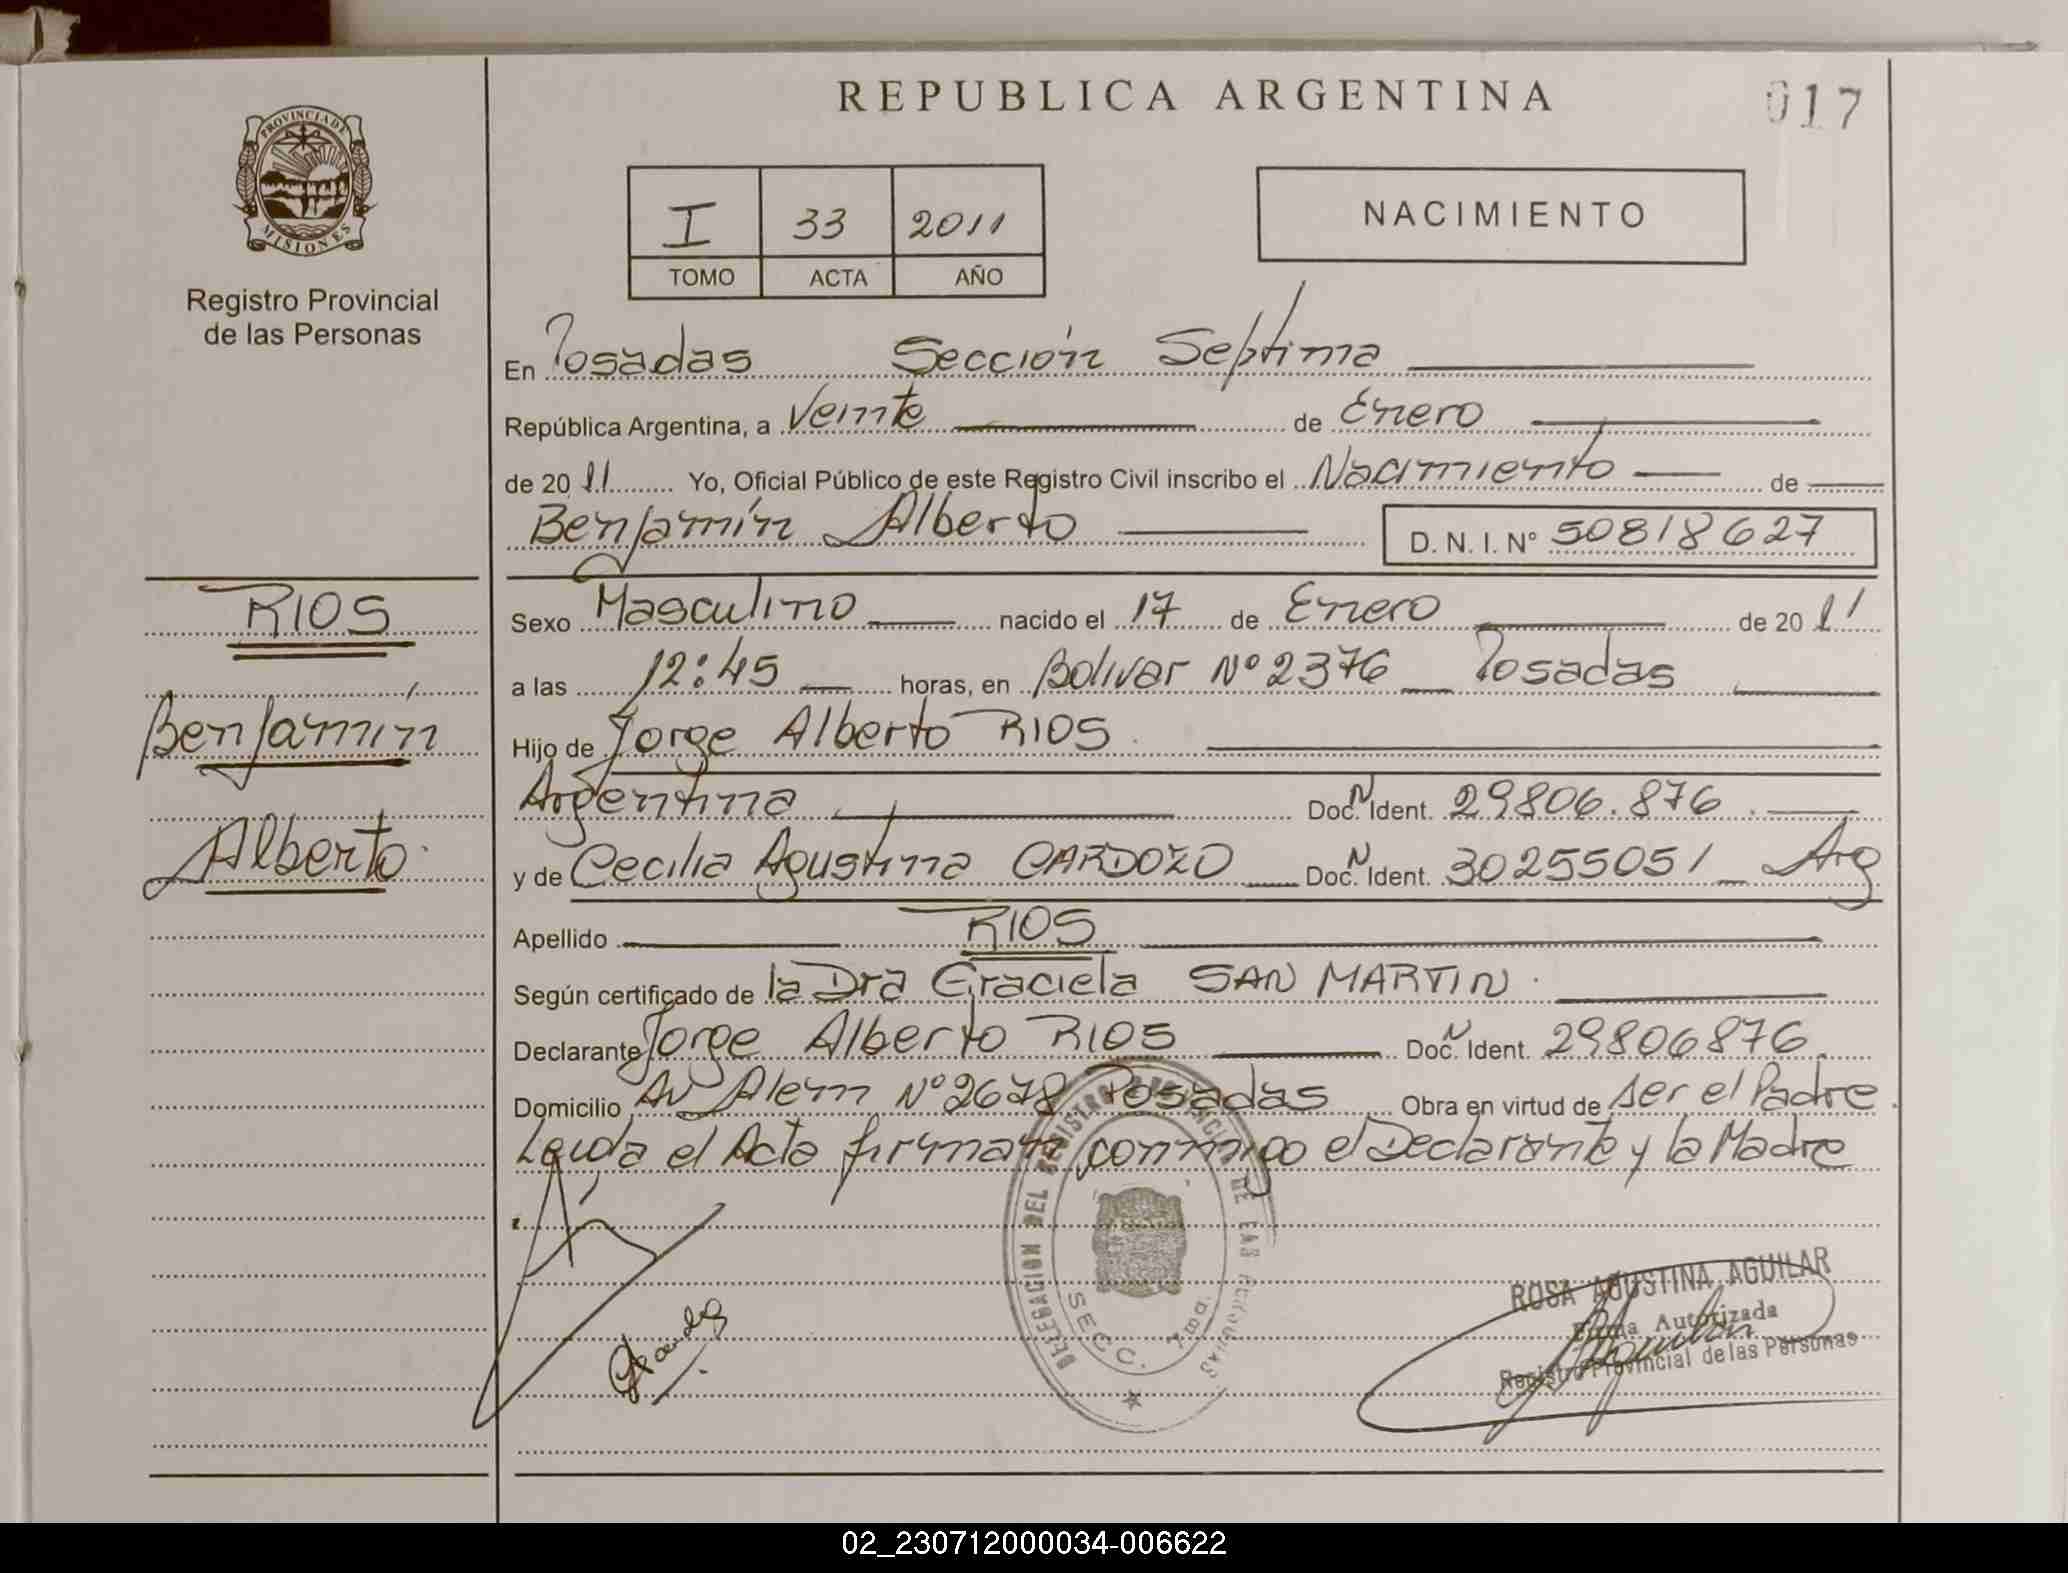 REPUBLICA ARGENTINA
017
PROVINCIA DE
MISIONES
Registro Provincial
de las Personas
I 33 2011
TOMO ACTA AÑO
NACIMIENTO
En Posadas Sección Septima
República Argentina, a Veinte de Enero
de 2011 Yo, Oficial Público de este Registro Civil inscribo el Nacimiento de
Benjamín Alberto D. N. I. Nº 50818627
RIOS
Benjamín
Alberto
Sexo Masculino nacido el 17 de Enero de 2011
a las 12:45 horas, en Bolivar Nº 2376 Posadas
Hijo de Jorge Alberto RIOS
Argentina Doc. N Ident. 29806.876
y de Cecilia Agustina CARDOZO Doc. N Ident. 30255051 Arg
Apellido RIOS
Según certificado de la Dra Graciela SAN MARTIN
Declarante Jorge Alberto RIOS Doc. N Ident. 29806876
Domicilio Av Alem Nº 2678 Posadas Obra en virtud de ser el Padre
Leida el Acta firman conmigo el Declarante y la Madre
DELEGACION DEL REGISTRO PROVINCIAL DE LAS PERSONAS
SECC. 7ma.
ROSA AGUSTINA AGUILAR
Firma Autorizada
Registro Provincial de las Personas
02_230712000034-006622